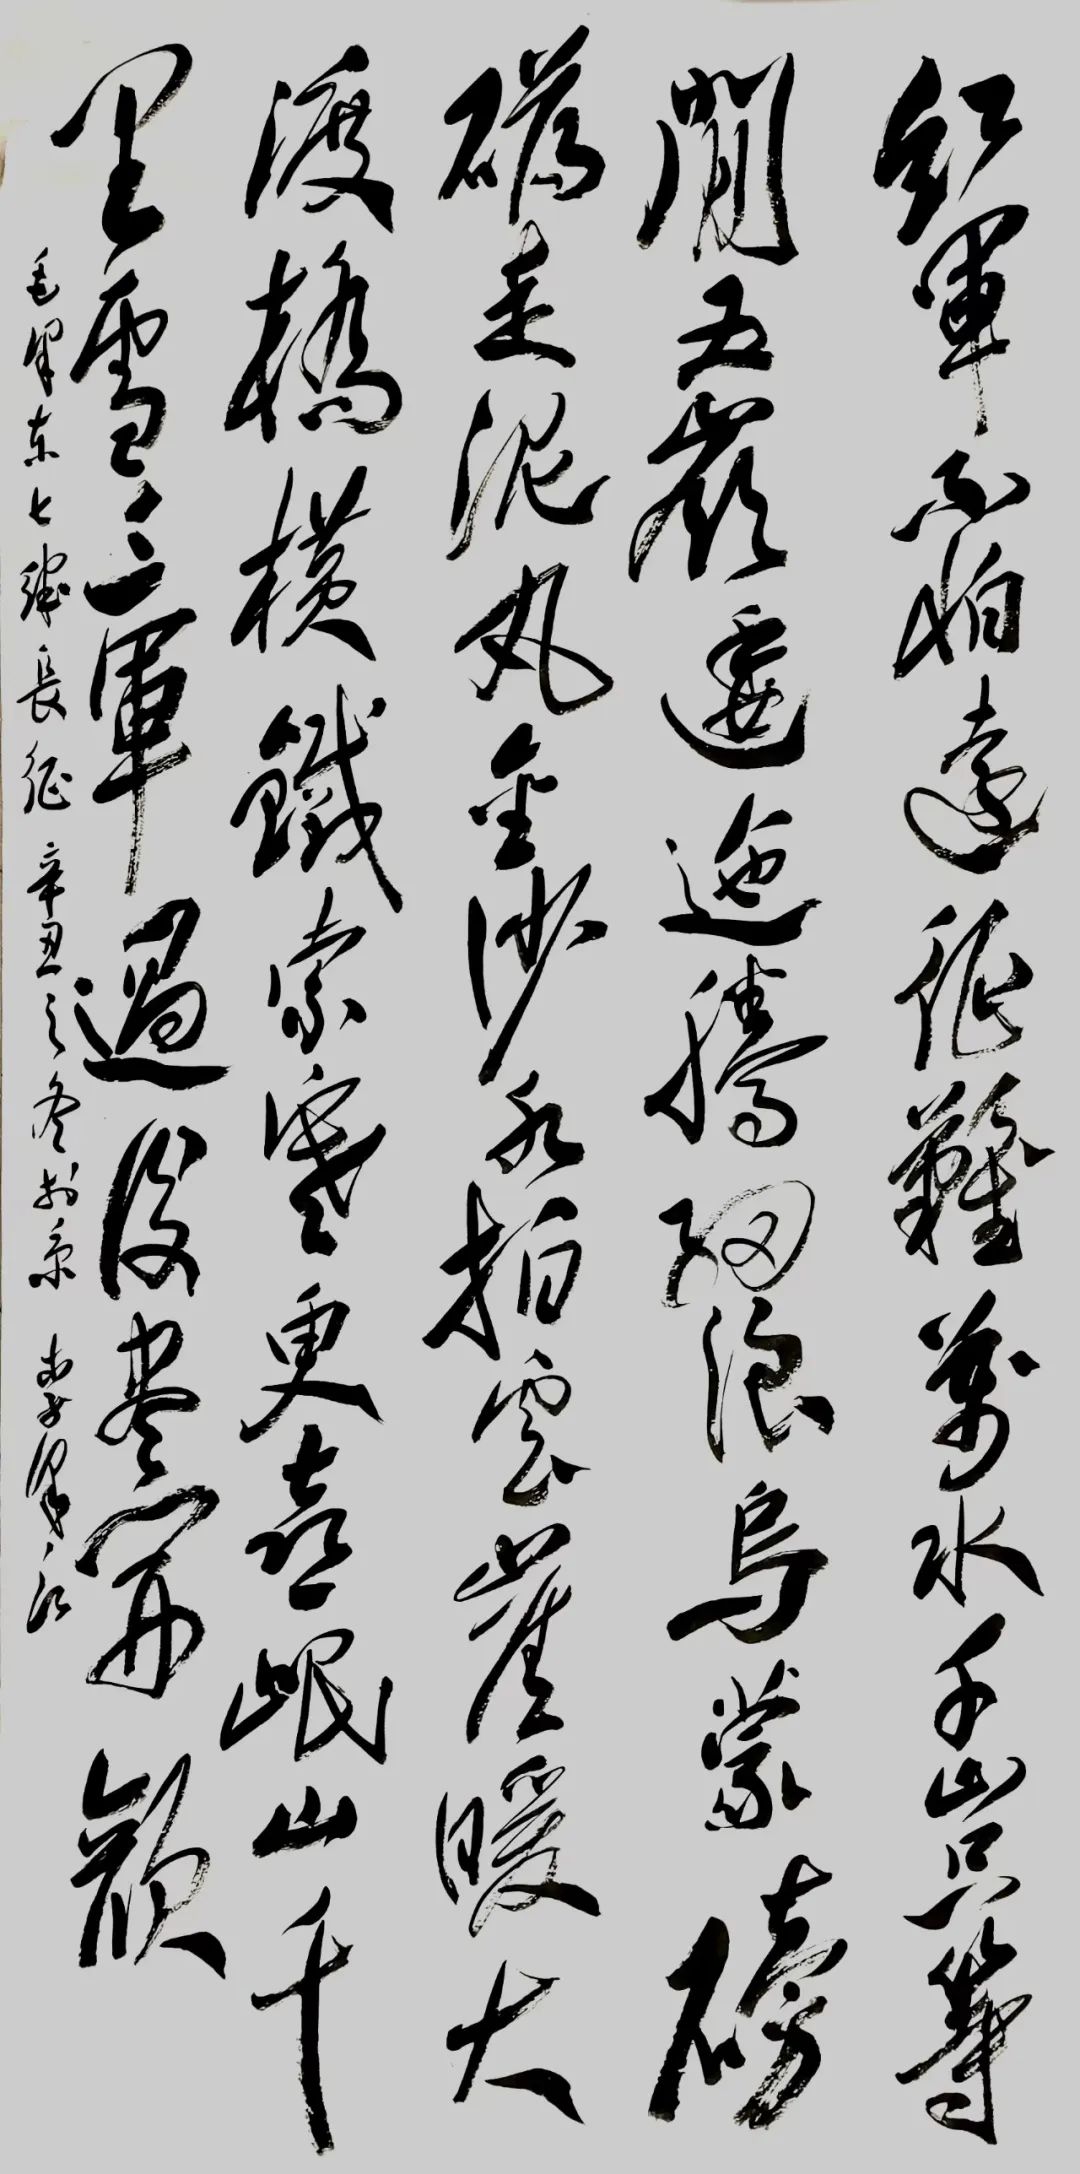 紅軍不怕遠征難萬水千山只等
閒五嶺逶迤騰細浪烏蒙磅
礴走泥丸金沙水拍雲崖暖大
渡橋橫鐵索寒更喜岷山千
里雪三軍過後盡開顏
毛澤東七律長征 辛丑之冬於京 李澤